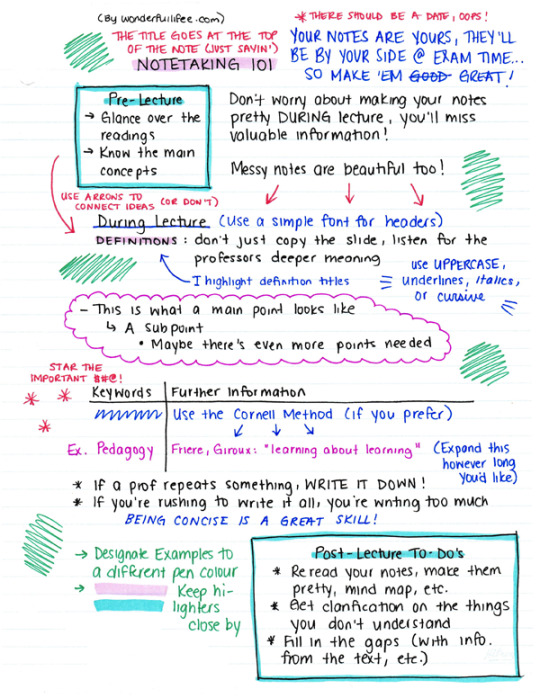 (By wonderfullifee.com)
* THERE SHOULD BE A DATE, OOPS!
THE TITLE GOES AT THE TOP
OF THE NOTE (JUST SAYIN')
NOTETAKING 101
YOUR NOTES ARE YOURS, THEY'LL
BE BY YOUR SIDE @ EXAM TIME...
SO MAKE 'EM GOOD GREAT!
Pre-Lecture
→ Glance over the
readings
→ Know the main
concepts
Don't worry about making your notes
pretty DURING lecture, you'll miss
valuable information!
Messy notes are beautiful too!
USE ARROWS TO
CONNECT IDEAS (OR DON'T)
During Lecture (Use a simple font for headers)
DEFINITIONS: don't just copy the slide, listen for the
professors deeper meaning
I highlight definition titles
use UPPERCASE,
underlines, italics,
or cursive
- This is what a main point looks like
↳ A subpoint
• Maybe there's even more points needed
STAR THE
IMPORTANT #@!
Keywords | Further Information
Use the Cornell Method (if you prefer)
Ex. Pedagogy | Friere, Giroux: "learning about learning"
(Expand this
however long
you'd like)
* If a prof repeats something, WRITE IT DOWN!
* If you're rushing to write it all, you're writing too much
BEING CONCISE IS A GREAT SKILL!
→ Designate Examples to
a different pen colour
→ Keep hi-
lighters
close by
Post-Lecture To-Do's
* Reread your notes, make them
pretty, mind map, etc.
* Get clarification on the things
you don't understand
* Fill in the gaps (with info.
from the text, etc.)